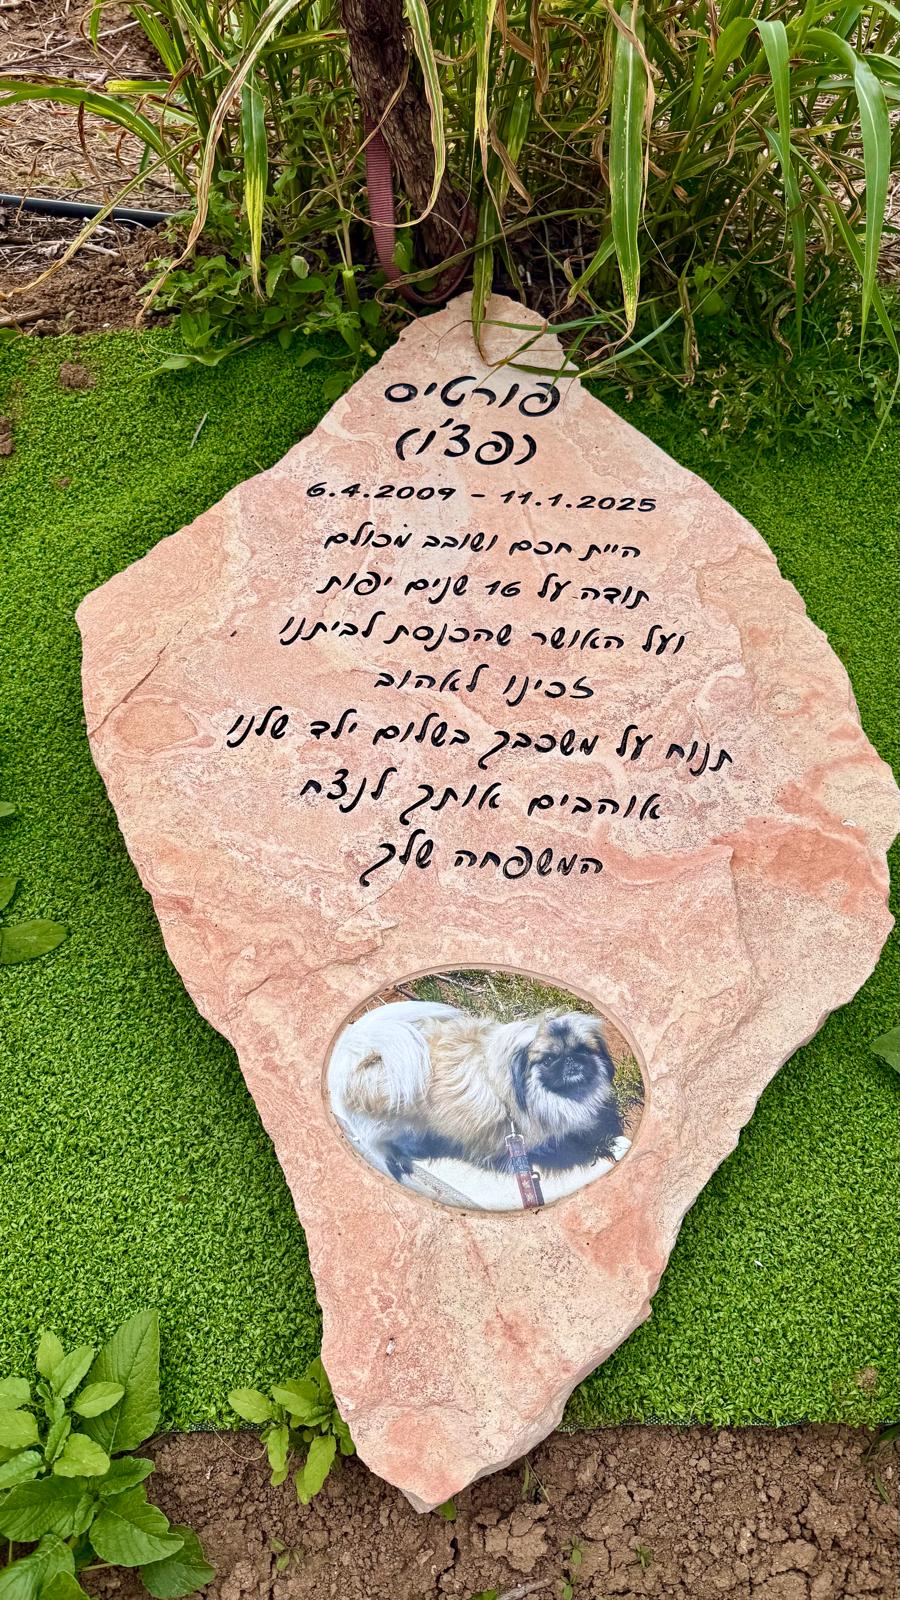 פורטיס
(פצ'ו)
6.4.2009 - 11.1.2025
היית חכם ושובב מכולם
תודה על 16 שנים יפות
ועל האושר שהכנסת לביתנו
זכינו לאהוב
תנוח על משכבך בשלום ילד שלנו
אוהבים אותך לנצח
המשפחה שלך